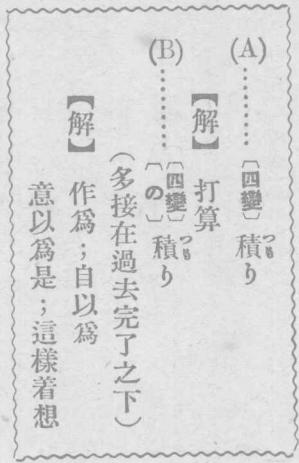 (A)………〔四變〕積り
つも
【解】 打算
(B)………〔四變〕〔の〕積り
つも
(多接在過去完了之下)
【解】 作爲；自以爲
意以爲是；這樣着想